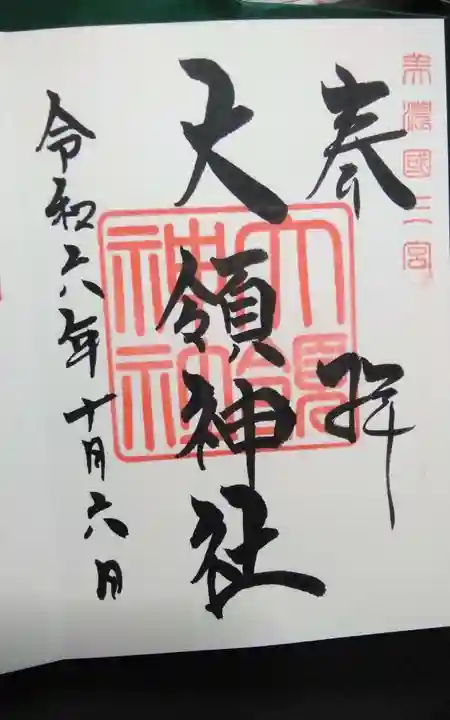 美濃國二宮
奉拝
大領神社
大領神社
令和六年十月六日